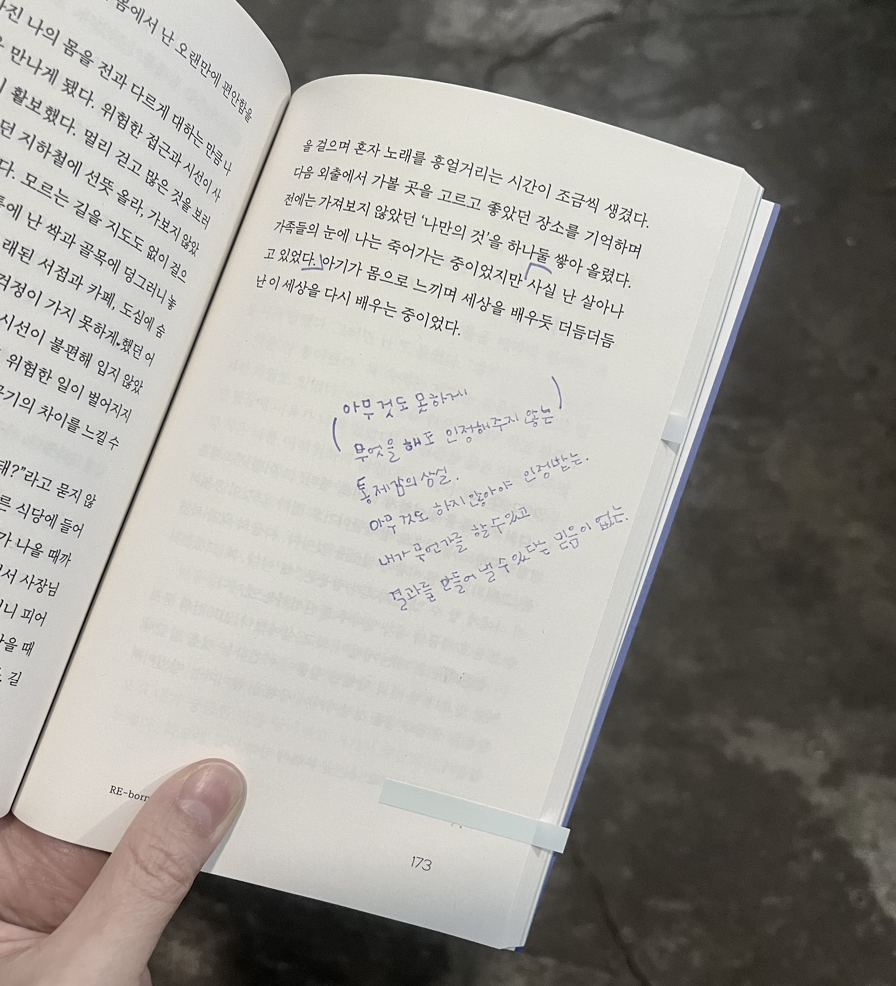 몸에서 난 오랜만에 편안함을
나의 몸을 전과 다르게 대하는 만큼 나
만나게 됐다. 위험한 접근과 시선이 사
활보했다. 멀리 걷고 많은 것을 보러
던 지하철에 선뜻 올라, 가보지 않았
다. 모르는 길을 지도도 없이 걸으
에 난 싹과 골목에 덩그러니 놓
래된 서점과 카페, 도심에 숨
걱정이 가지 못하게 했던 어
시선이 불편해 입지 않았
위험한 일이 벌어지지
기의 차이를 느낄 수
돼?”라고 묻지 않
른 식당에 들어
가 나올 때까
서 사장님
니 피어
을 때
길
을 걸으며 혼자 노래를 흥얼거리는 시간이 조금씩 생겼다.
다음 외출에서 가볼 곳을 고르고 좋았던 장소를 기억하며
전에는 가져보지 않았던 ‘나만의 것’을 하나둘 쌓아 올렸다.
가족들의 눈에 나는 죽어가는 중이었지만 사실 난 살아나
고 있었다. 아기가 몸으로 느끼며 세상을 배우듯 더듬더듬
난 이 세상을 다시 배우는 중이었다.
아무것도 못하게
( 무엇을 해도 인정해주지 않는 )
통제감의 상실.
아무것도 하지 않아야 인정받는.
내가 무언가를 할 수 있고
결과를 만들어 낼 수 있다는 믿음이 없는.
RE-born
173